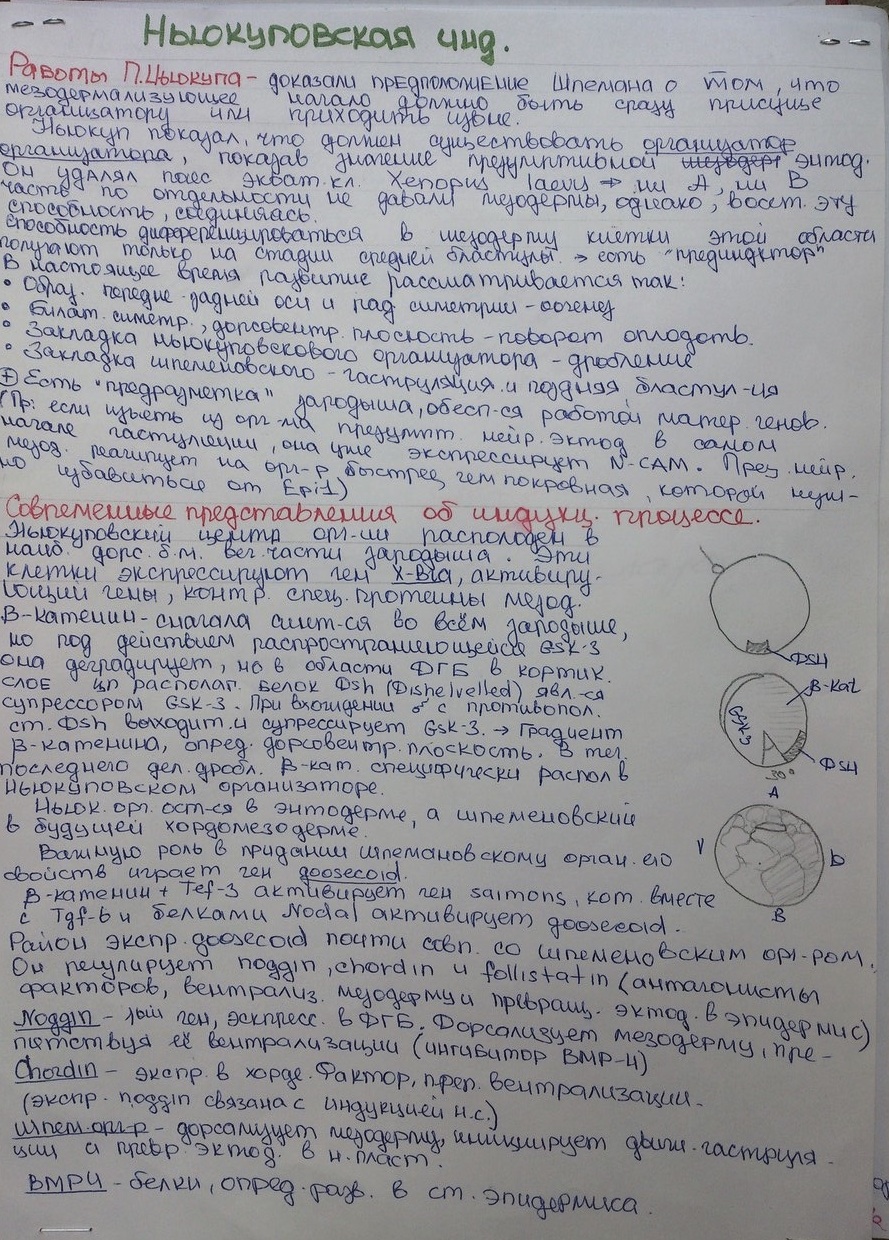 Ньюкуповская инд.
Работы П.Ньюкупа – доказали предположение Шпемана о том, что
мезодермализующее начало должно быть сразу присуще
организатору или приходить извне.
Ньюкуп показал, что должен существовать организатор
организатора, показав значение презумптивной энтод.
Он удалял пояс экват. кл. Xenopus laevis → ни А, ни В
часть по отдельности не давали мезодермы, однако, восст. эту
способность, соединяясь.
способность дифференцироваться в мезодерму клетки этой области
получают только на стадии средней бластулы. → есть "прединдуктор"
В настоящее время развитие рассматривается так:
• Образ. передне-задней оси и рад симетрии – оогенез
• Билат. симетр., дорсовентр. плоскость – поворот оплодотв.
• Закладка ньюкуповского организатора – дробление
• Закладка шпеменовского – гаструляция и поздняя бластул-ия
+ Есть "предразметка" зародыша, обесп-ся работой матер. генов.
(Пр: если изъять из орг-ма презумпт. нейр. эктод в самом
начале гаструляции, она уже экспрессирует N-CAM. През. нейр.
мезод. реагирует на орг-р быстрее, чем покровная, которой нуж-
но избавиться от Epi1)
Современные представления об индукц. процессе.
Ньюкуповский центр орг-ии расположен в
наиб. дорс. б.м. вег. части зародыша. Эти
клетки экспрессируют ген X-Bra, активиру-
ющий гены, контр. спец. протеины мезод.
B-катенин – сначала синт-ся во всём зародыше,
но под действием распространяющейся GSK-3
она деградирует, но в области ДГБ в кортик.
слое цп располаг. белок Dsh (Dishelvelled) явл-ся
супрессором GSK-3. При вхождении ♂ с противопол.
ст. Dsh выходит и супрессирует GSK-3. → Градиент
B-катенина, опред. дорсовентр. плоскость. В теч.
последнего дел. дробл. B-кат. специфически распол в
Ньюкуповском организаторе.
Ньюк. орг. ост-ся в энтодерме, а шпеменовский
в будущей хордомезодерме.
Важную роль в придании шпемановскому орган. его
свойств играет ген goosecoid.
B-катенин + Tcf-3 активирует ген siamons, кот. вместе
с Tgf-b и белками Nodal активирует goosecoid.
Район экспр. goosecoid почти совп. со шпеменовским орг-ром.
Он регулирует noggin, chordin и follistatin (антагонисты
факторов, вентрализ. мезодерму и превращ. эктод. в эпидермис)
Noggin – 1ый ген, эспресс. в ДГБ. Дорсализует мезодерму, пре-
пятствуя её вентрализации (ингибитор BMP-4)
Chordin – экспр. в хорде. Фактор, преп. вентрализации.
(экспр. noggin связана с индукцией н.с.)
Шпем. орг-р – дорсализует мезодерму, инициирует движ. гаструля-
ции и превр. эктод. в н. пласт.
BMP4 – белки, опред. разв. в ст. эпидермиса.
DSH
B-kat
GSK-3
DSH
30°
A
V
D
B